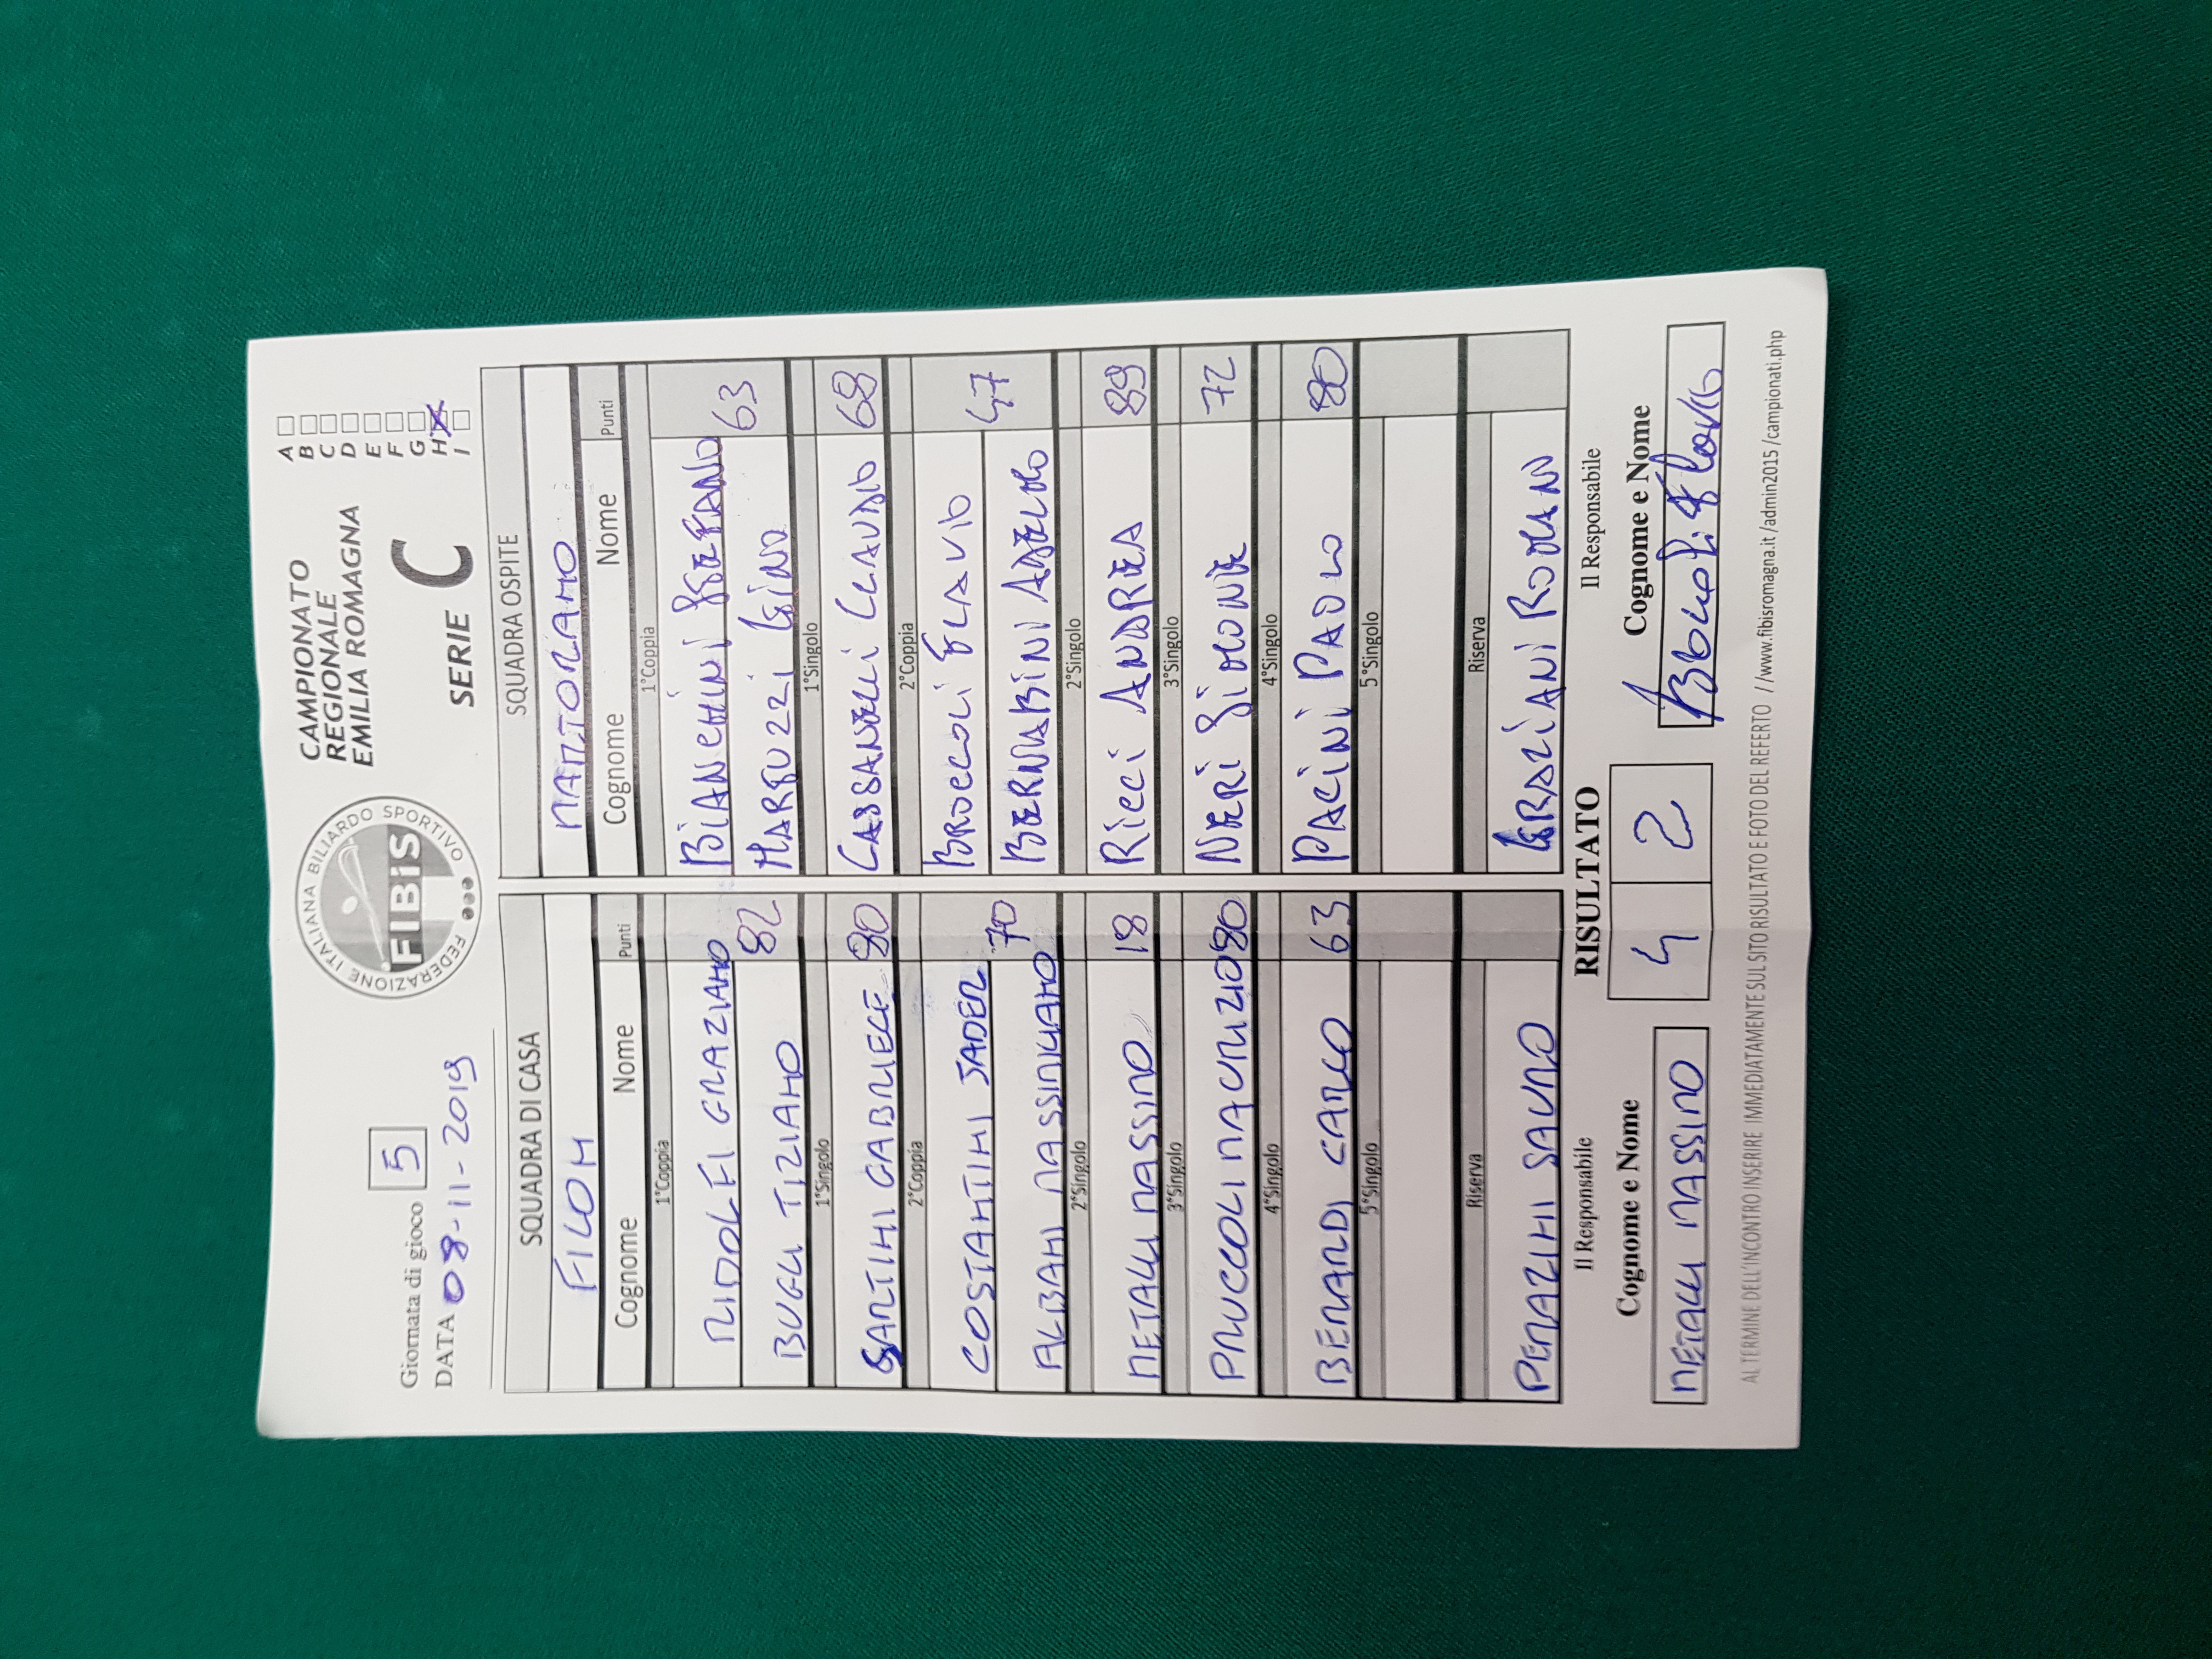 Giornata di gioco 5
DATA 08-11-2019
FEDERAZIONE ITALIANA BILIARDO SPORTIVO
FIBiS
CAMPIONATO
REGIONALE
EMILIA ROMAGNA
SERIE C
A
B
C
D
E
F
G
H X
I
SQUADRA DI CASA SQUADRA OSPITE
FILOH MARTORANO
Cognome Nome Punti Cognome Nome Punti
1°Coppia 1°Coppia
RIDOLFI GRAZIANO BIANCHINI STEFANO
BUGLI TIZIANO 82 MARFUZZI GINO 63
1°Singolo 1°Singolo
SANTINI GABRIELE 80 CASSANELLI CLAUDIO 68
2°Coppia 2°Coppia
COSTANTINI JADER BROCCOLI FLAVIO
ALBANI MASSIMILIANO 70 BERNABINI ANGELO 47
2°Singolo 2°Singolo
METALLI MASSIMO 18 RICCI ANDREA 89
3°Singolo 3°Singolo
PRUCCOLI MAURIZIO 80 NERI SIMONE 72
4°Singolo 4°Singolo
BERARDI CARLO 63 PACINI PAOLO 80
5°Singolo 5°Singolo
Riserva Riserva
PERAZZINI SAURO GRAZIANI ROMAN
Il Responsabile RISULTATO Il Responsabile
Cognome e Nome 4 2 Cognome e Nome
METALLI MASSIMO Broccoli Flavio
AL TERMINE DELL'INCONTRO INSERIRE IMMEDIATAMENTE SUL SITO RISULTATO E FOTO DEL REFERTO //www.fibisromagna.it/admin2015/campionati.php